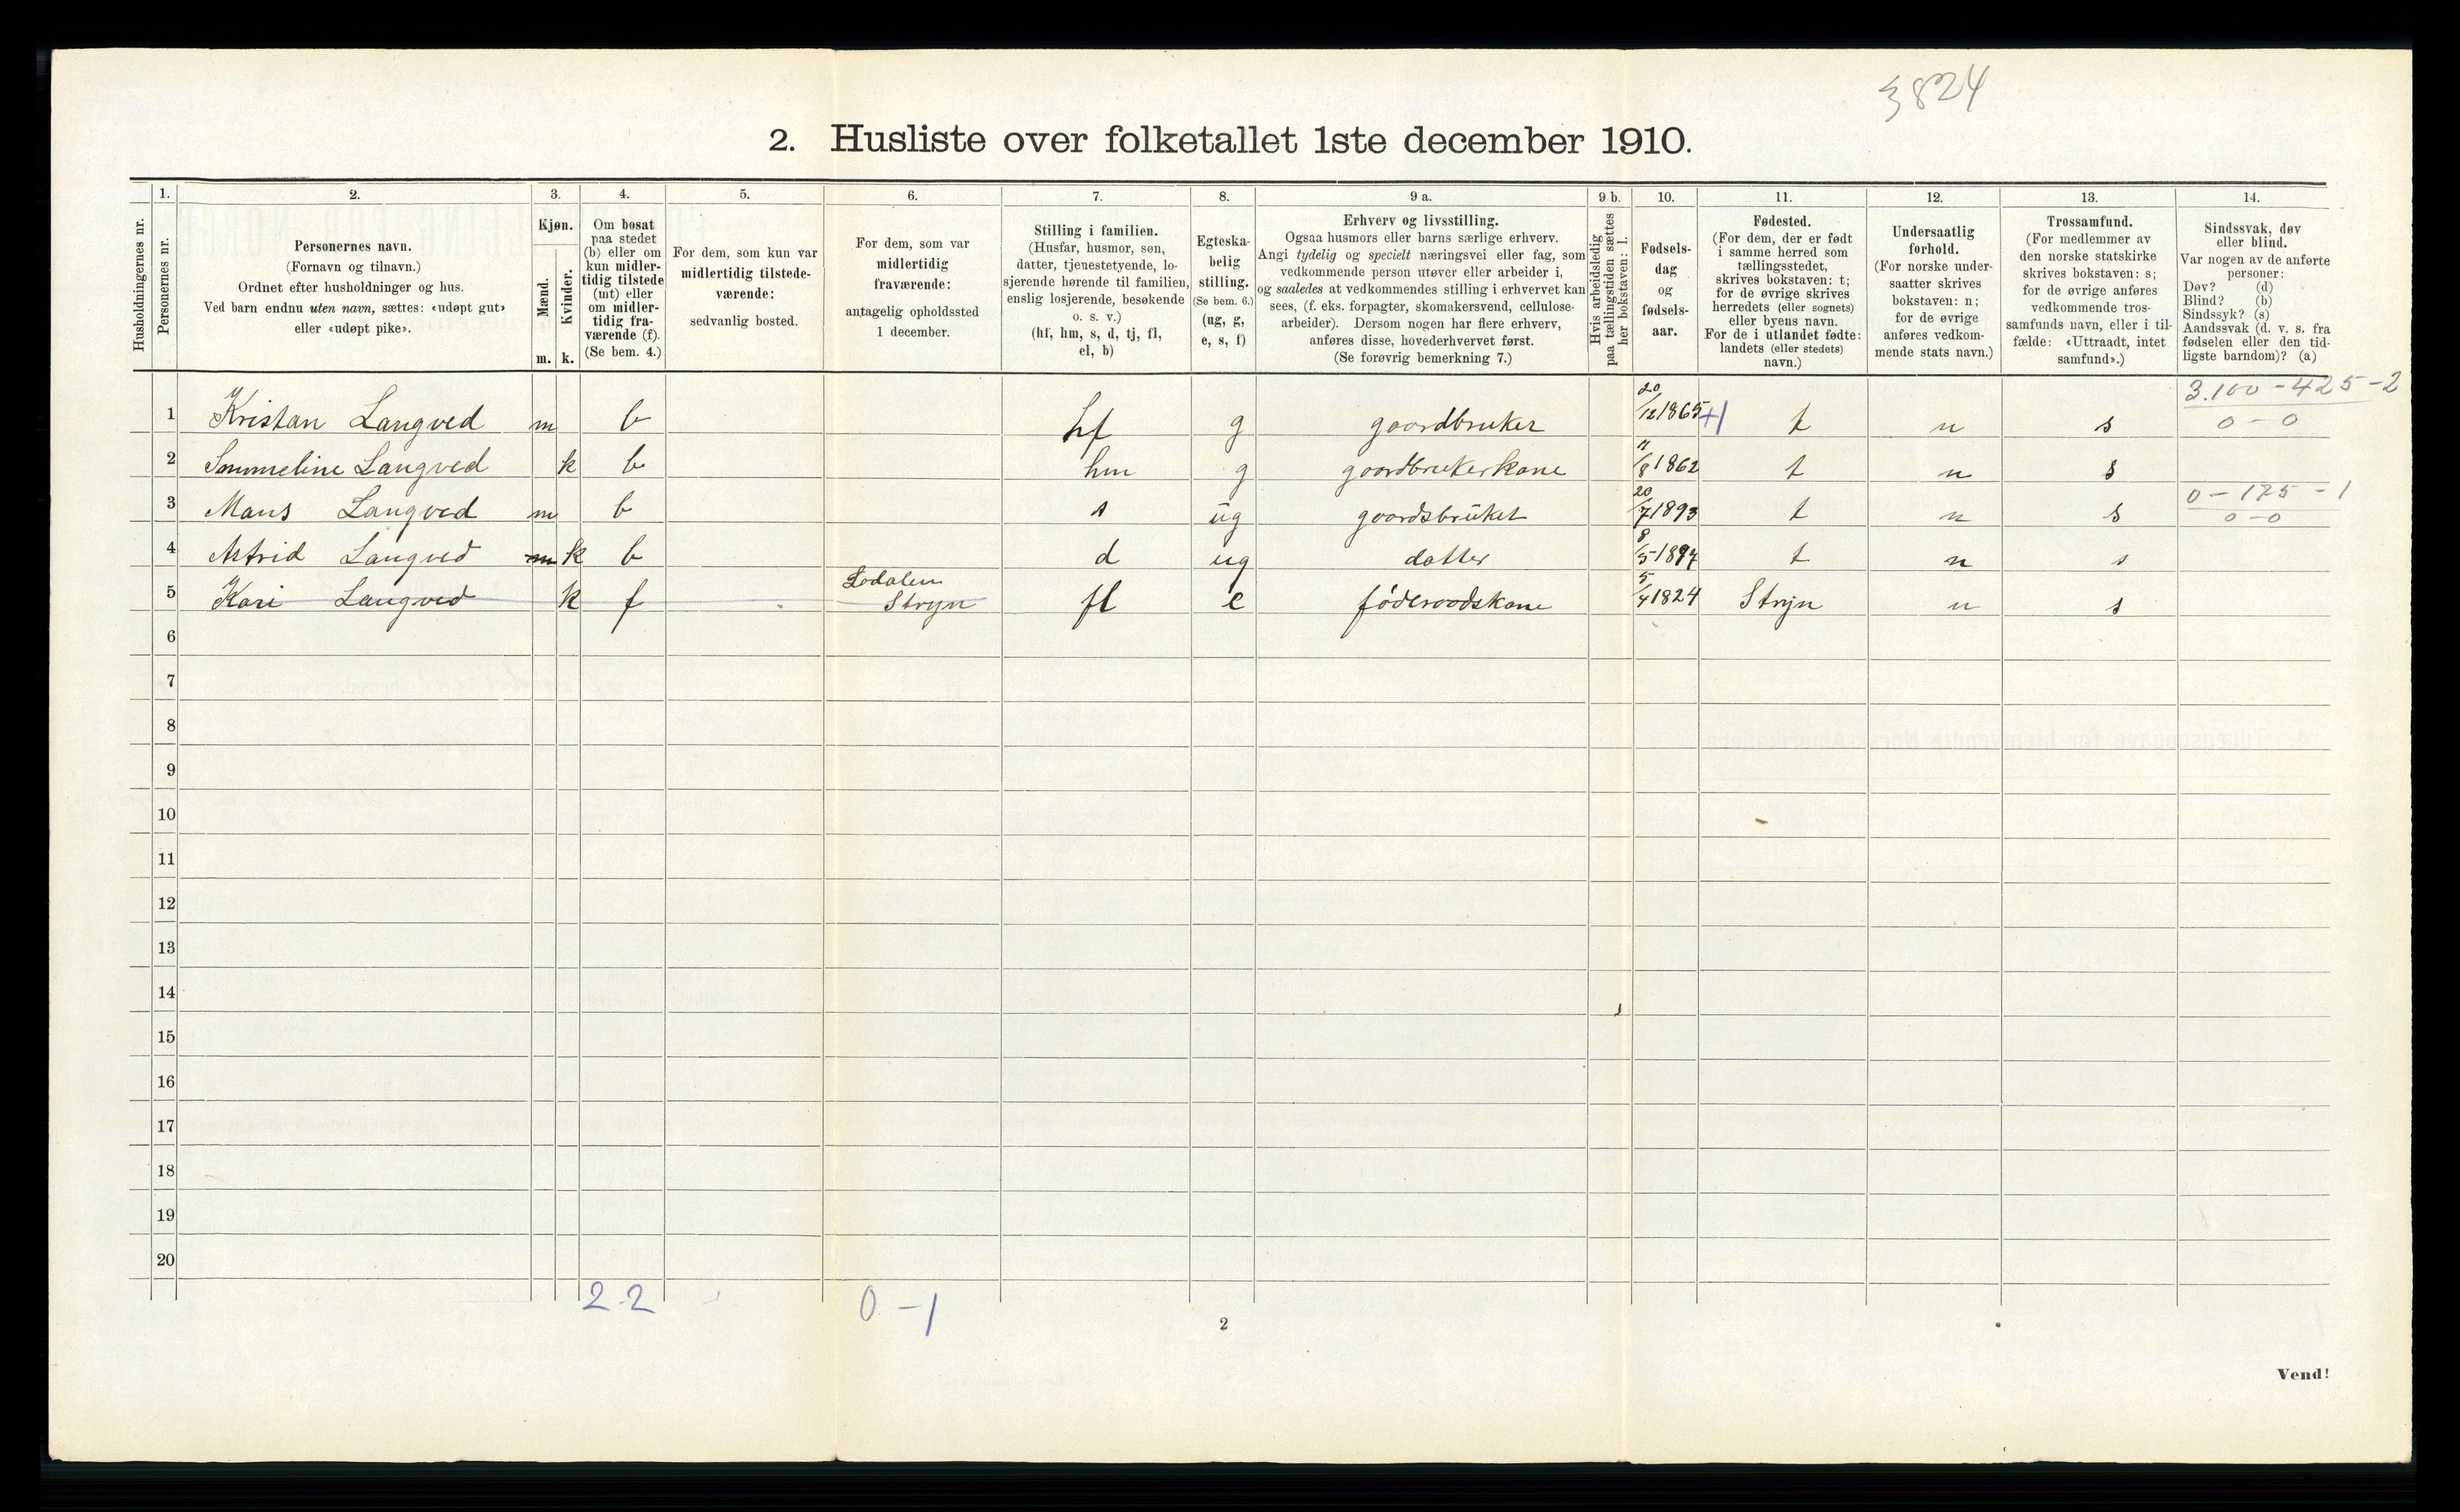 3824
2. Husliste over folketallet 1ste december 1910.
Husholdningernes nr.
1.
Personernes nr.
2.
Personernes navn.
(Fornavn og tilnavn.)
Ordnet efter husholdninger og hus.
Ved barn endnu uten navn, sættes: «udøpt gut»
eller «udøpt pike».
3.
Kjøn.
Mænd.
Kvinder.
m. k.
4.
Om bosat
paa stedet
(b) eller om
kun midler-
tidig tilstede
(mt) eller
om midler-
tidig fra-
værende (f).
(Se bem. 4.)
5.
For dem, som kun var
midlertidig tilstede-
værende:
sedvanlig bosted.
6.
For dem, som var
midlertidig
fraværende:
antagelig opholdssted
1 december.
7.
Stilling i familien.
(Husfar, husmor, søn,
datter, tjenestetyende, lo-
sjerende hørende til familien,
enslig losjerende, besøkende
o. s. v.)
(hf, hm, s, d, tj, fl,
el, b)
8.
Egteska-
belig
stilling.
(Se bem. 6.)
(ug, g,
e, s, f)
9 a.
Erhverv og livsstilling.
Ogsaa husmors eller barns særlige erhverv.
Angi tydelig og specielt næringsvei eller fag, som
vedkommende person utøver eller arbeider i,
og saaledes at vedkommendes stilling i erhvervet kan
sees, (f. eks. forpagter, skomakersvend, cellulose-
arbeider). Dersom nogen har flere erhverv,
anføres disse, hovederhvervet først.
(Se forøvrig bemerkning 7.)
9 b.
Hvis arbeidsledig
paa tællingstiden sættes
her bokstaven: l.
10.
Fødsels-
dag
og
fødsels-
aar.
11.
Fødested.
(For dem, der er født
i samme herred som
tællingsstedet,
skrives bokstaven: t;
for de øvrige skrives
herredets (eller sognets)
eller byens navn.
For de i utlandet fødte:
landets (eller stedets)
navn.)
12.
Undersaatlig
forhold.
(For norske under-
saatter skrives
bokstaven: n;
for de øvrige
anføres vedkom-
mende stats navn.)
13.
Trossamfund.
(For medlemmer av
den norske statskirke
skrives bokstaven: s;
for de øvrige anføres
vedkommende tros-
samfunds navn, eller i til-
fælde: «Uttraadt, intet
samfund».)
14.
Sindssvak, døv
eller blind.
Var nogen av de anførte
personer:
Døv? (d)
Blind? (b)
Sindssyk? (s)
Aandssvak (d. v. s. fra
fødselen eller den tid-
ligste barndom)? (a)
3.100 - 425 - 2
1 Kristan Langved m b hf g gaardbruker 20/12 1865 +1 t n s 0 - 0
2 Smmeline Langved k b hm g gaardbrukerkone 11/8 1862 t n s
0 - 175 - 1
3 Mans Langved m b s ug gaardsbruket 20/7 1893 t n s 0 - 0
4 Astrid Langved m k b d ug datter 8/5 1897 t n s
Lodalen
5 Kari Langved k f Stryn fl e föderaadskone 5/4 1824 Stryn n s
6
7
8
9
10
11
12
13
14
15
16
17
18
19
20
2 2 0 - 1
2
Vend!